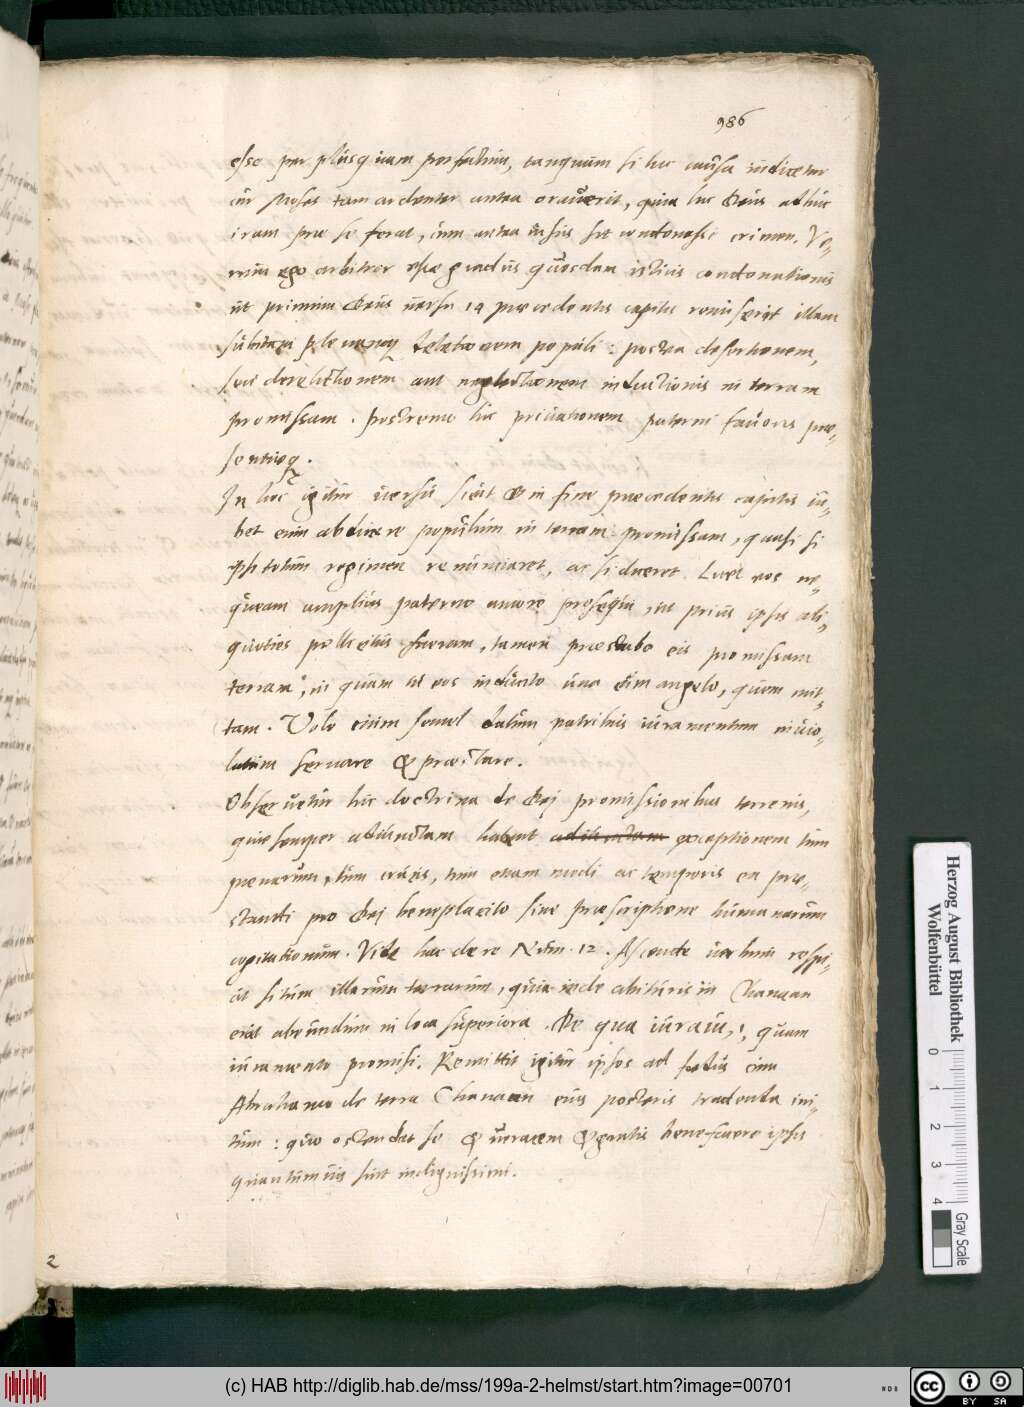 986
esse per plusquam perfectum, tanquam si hic causa indicetur
cur Moses tam ardenter antea oraverit, quia hic Deus adhuc
iram prae se ferat, cum antea visus sit condonasse crimen. Ve-
rum ego arbitror esse gradus quosdam istius condonationis
ut primum Deus versu 14 praecedentis capitis remiserit illam
subitam populi: postea desertionem,
seu derelictionem aut neglectionem inductionis in terram
promissam. Postremo hic privationem paterni favoris prae-
sentisq.
In hoc igitur versu sicut & in fine praecedentis capitis iu-
bet eum abducere populum in terram promissam, quasi si
ipsi totum regimen renunciaret, ac si diceret. Licet eos ne-
queam amplius paterno amore prosequi, ut prius ipsis ali-
quoties pollicitus fueram, tamen praestabo eis promissam
terram, in quam ut eos inducito una cum angelo, quem mit-
tam. Volo enim semel datum patribus iuramentum invio-
latum servare & praestare.
Observetur hic doctrina de Dei promissionibus terrenis,
quae semper adiunctam habent exceptionem tum
poenarum, tum crucis, tum etiam modi ac temporis ea prae-
standi pro Dei beneplacito sine praescriptione humanarum
cogitationum. Vide hac de re Num. 12. Ascende verbum respi-
cit situm illarum terrarum, quia inde abituris in Chanaan
erat abeundum in loca superiora. De qua iuravi, quam
iuramento promisi. Remittit igitur ipsos ad foedus cum
Abrahamo de terra Chanaan eius posteris tradenda ini-
tum: quo ostendat se & veracem & gratis benefacere ipsis
quantumvis sint indignissimi.
2
Herzog August Bibliothek
Wolfenbüttel
0 1 2 3 4
Gray Scale
(c) HAB http://diglib.hab.de/mss/199a-2-helmst/start.htm?image=00701
cc BY SA